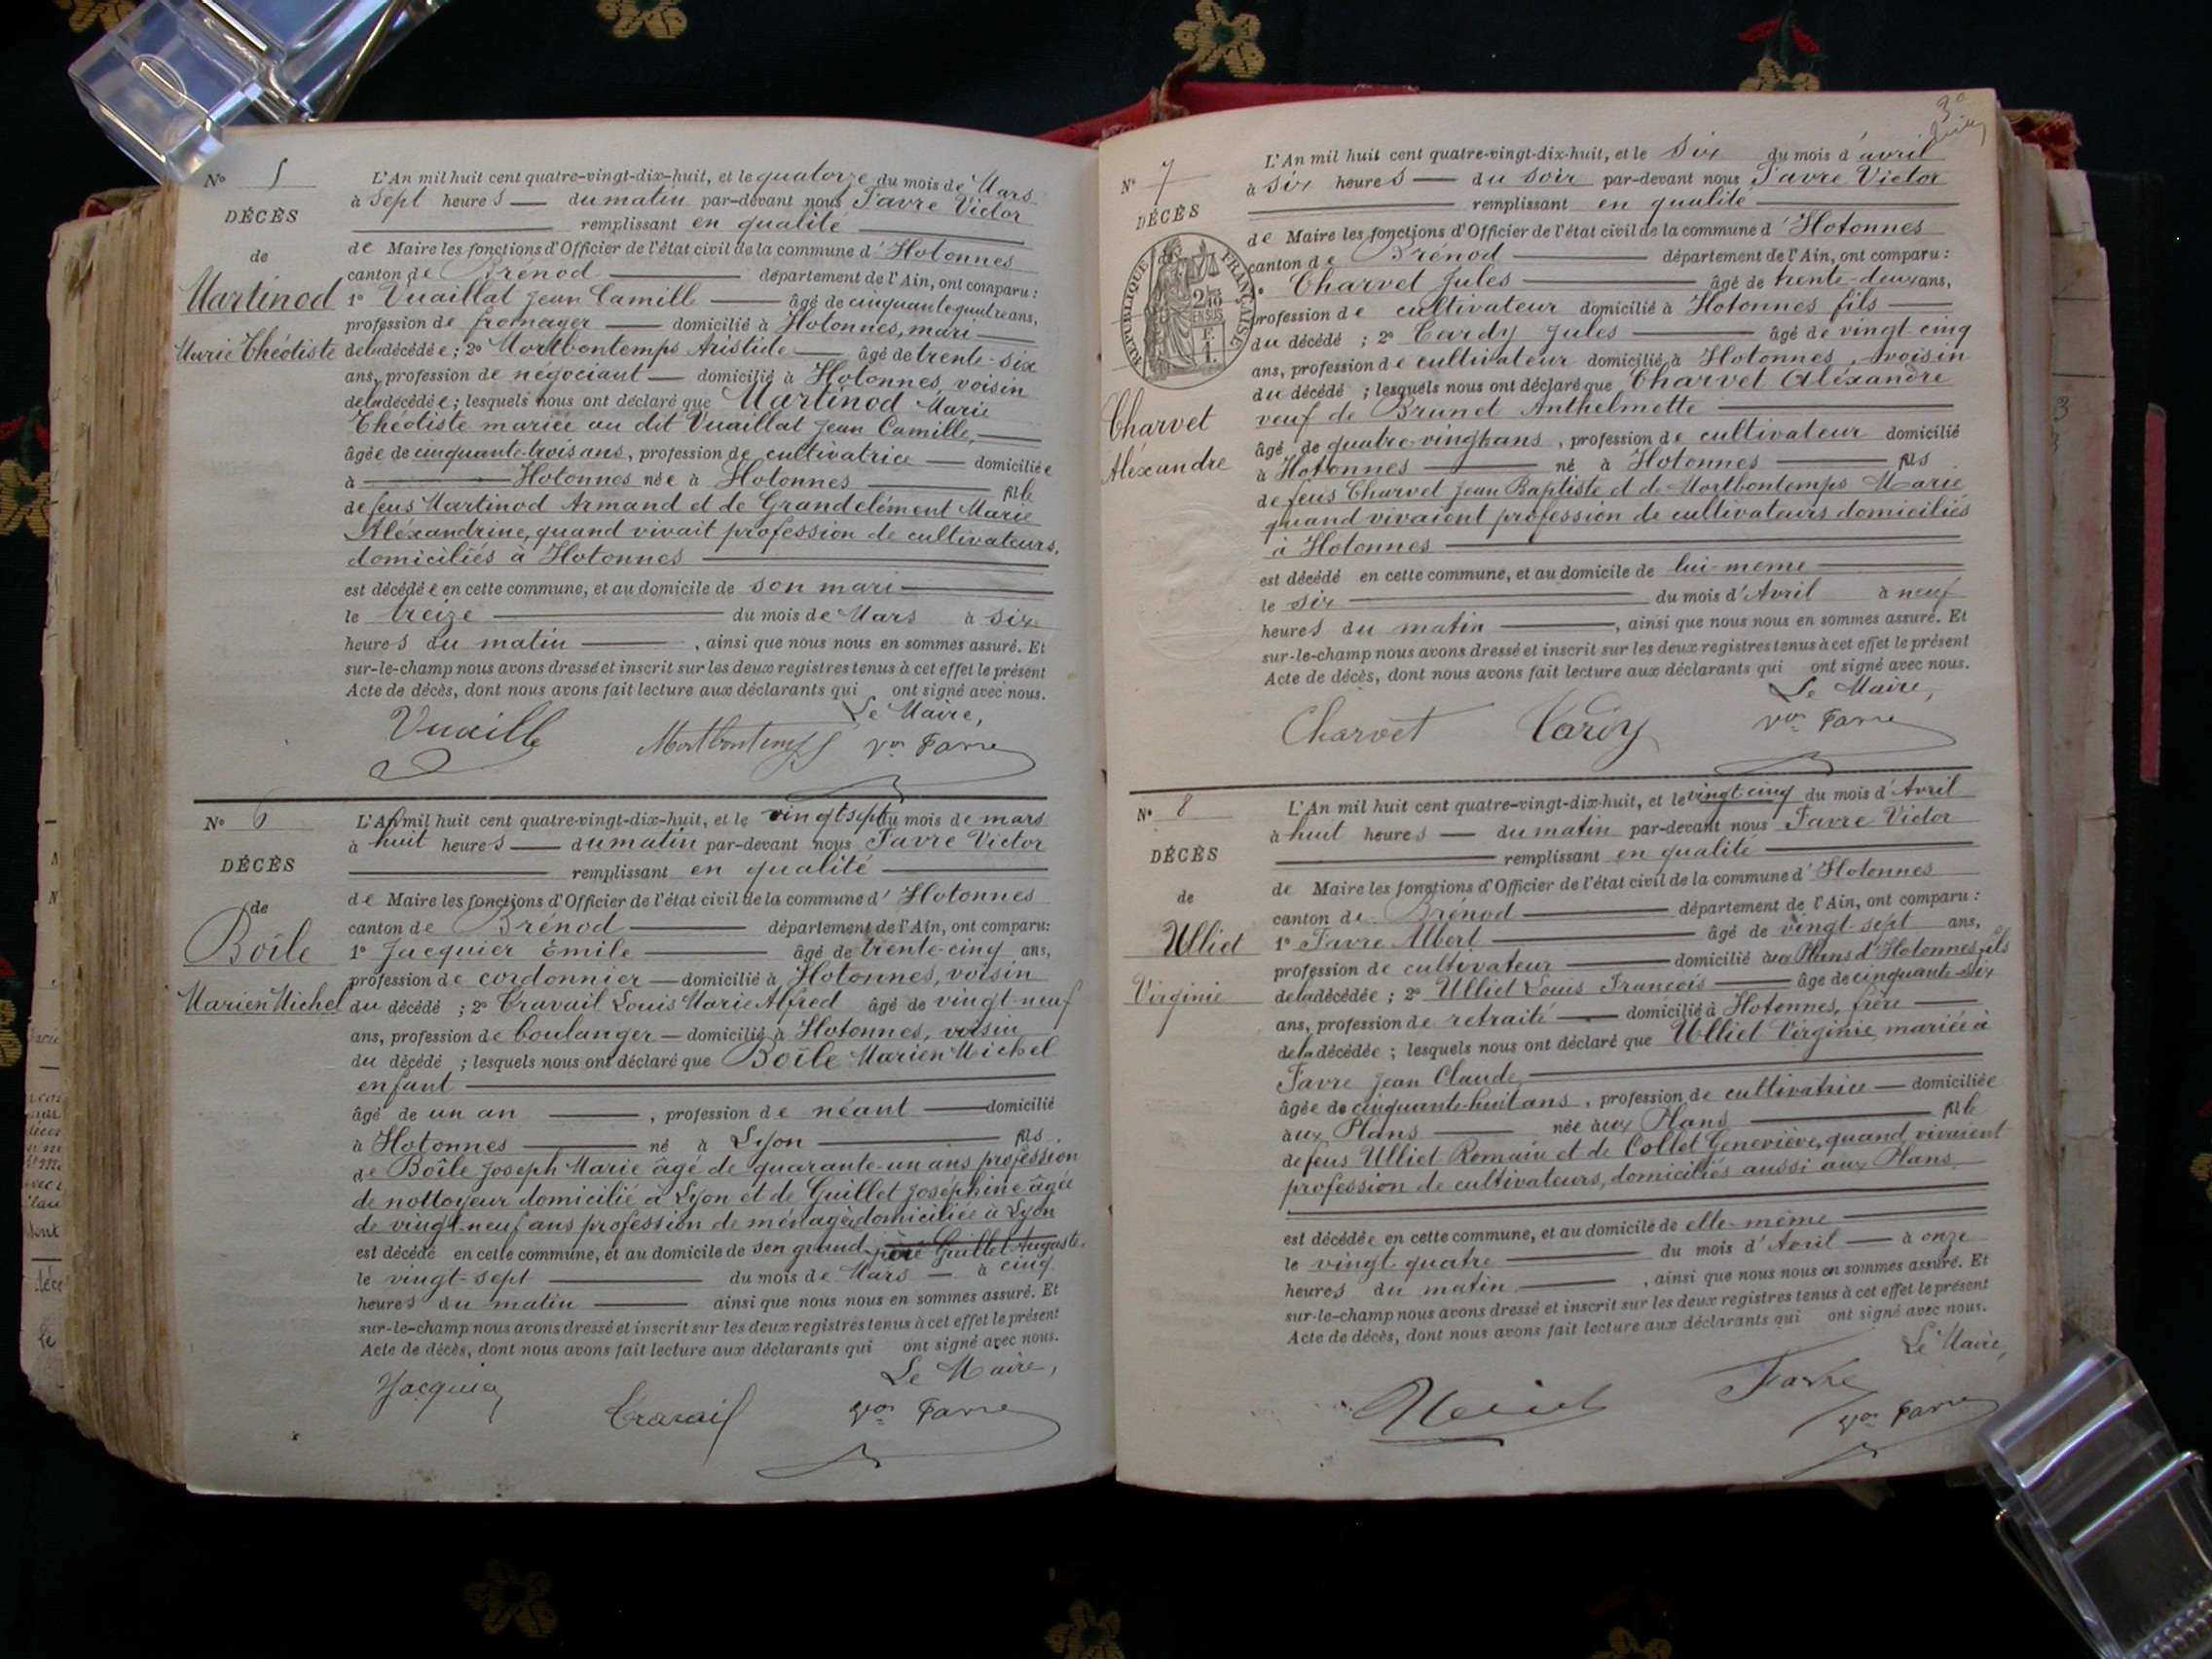 Nº 5
DÉCÈS
de
Martinod
Marie Théotiste
L'An mil huit cent quatre-vingt-dix-huit, et le quatorze du mois de Mars
à Sept heures du matin par-devant nous Favre Victor
remplissant en qualité
de Maire les fonctions d'Officier de l'état civil de la commune d'Hotonnes
canton de Brénod département de l'Ain, ont comparu :
1º Vuaillat Jean Camille âgé de cinquante quatre ans,
profession de fromager domicilié à Hotonnes, mari
de la décédée ; 2º Mortbontemps Aristide âgé de trente-six
ans, profession de négociant domicilié à Hotonnes voisin
de la décédée ; lesquels nous ont déclaré que Martinod Marie
Théotiste mariée au dit Vuaillat Jean Camille,
âgée de cinquante-trois ans, profession de cultivatrice domiciliée
à Hotonnes née à Hotonnes fille
de feus Martinod Armand et de Grandclément Marie
Aléxandrine, quand vivait profession de cultivateurs,
domiciliés à Hotonnes
est décédée en cette commune, et au domicile de son mari
le treize du mois de Mars à six
heures du matin, ainsi que nous nous en sommes assuré. Et
sur-le-champ nous avons dressé et inscrit sur les deux registres tenus à cet effet le présent
Acte de décès, dont nous avons fait lecture aux déclarants qui ont signé avec nous.
Le Maire,
Vuaille Mortbontemps Vor Favre
Nº 6
DÉCÈS
de
Boîle
Marien Michel
L'An mil huit cent quatre-vingt-dix-huit, et le vingt sept du mois de mars
à huit heures du matin par-devant nous Favre Victor
remplissant en qualité
de Maire les fonctions d'Officier de l'état civil de la commune d'Hotonnes
canton de Brénod département de l'Ain, ont comparu :
1º Jacquier Émile âgé de trente-cinq ans,
profession de cordonnier domicilié à Hotonnes, voisin
du décédé ; 2º Travail Louis Marie Alfred âgé de vingt-neuf
ans, profession de boulanger domicilié à Hotonnes, voisin
du décédé ; lesquels nous ont déclaré que Boîle Marien Michel
enfant
âgé de un an, profession de néant domicilié
à Hotonnes né à Lyon fils
de Boîle Joseph Marie âgé de quarante-un ans profession
de nottoyeur domicilié à Lyon et de Guillet Joséphine âgée
de vingt-neuf ans profession de ménagère domiciliée à Lyon
est décédé en cette commune, et au domicile de son grand-père Guillet Auguste.
le vingt-sept du mois de Mars à cinq
heures du matin ainsi que nous nous en sommes assuré. Et
sur-le-champ nous avons dressé et inscrit sur les deux registres tenus à cet effet le présent
Acte de décès, dont nous avons fait lecture aux déclarants qui ont signé avec nous.
Le Maire,
Jacquier Travail Vor Favre
Nº 7
DÉCÈS
RÉPUBLIQUE FRANÇAISE
Charvet
Aléxandre
L'An mil huit cent quatre-vingt-dix-huit, et le six du mois d'avril
à six heures du soir par-devant nous Favre Victor
remplissant en qualité
de Maire les fonctions d'Officier de l'état civil de la commune d'Hotonnes
canton de Brénod département de l'Ain, ont comparu :
Charvet Jules âgé de trente-deux ans,
profession de cultivateur domicilié à Hotonnes fils
du décédé ; 2º Cardy Jules âgé de vingt-cinq
ans, profession de cultivateur domicilié à Hotonnes, voisin
du décédé ; lesquels nous ont déclaré que Charvet Aléxandre
veuf de Brunet Anthelmette
âgé de quatre-vingt ans, profession de cultivateur domicilié
à Hotonnes né à Hotonnes fils
de feus Charvet Jean Baptiste et de Mortbontemps Marie
quand vivaient profession de cultivateurs domiciliés
à Hotonnes
est décédé en cette commune, et au domicile de lui-meme
le six du mois d'Avril à neuf
heures du matin, ainsi que nous nous en sommes assuré. Et
sur-le-champ nous avons dressé et inscrit sur les deux registres tenus à cet effet le présent
Acte de décès, dont nous avons fait lecture aux déclarants qui ont signé avec nous.
Le Maire,
Charvet Cardy Vor Favre
Nº 8
DÉCÈS
de
Ulliet
Virginie
L'An mil huit cent quatre-vingt-dix-huit, et le vingt cinq du mois d'Avril
à huit heures du matin par-devant nous Favre Victor
remplissant en qualité
de Maire les fonctions d'Officier de l'état civil de la commune d'Hotonnes
canton de Brénod département de l'Ain, ont comparu :
1º Favre Albert âgé de vingt-sept ans,
profession de cultivateur domicilié aux Plans d'Hotonnes, fils
de la décédée ; 2º Ulliet Louis François âgé de cinquante-six
ans, profession de retraité domicilié à Hotonnes, frère
de la décédée ; lesquels nous ont déclaré que Ulliet Virginie, mariée à
Favre Jean Claude,
âgée de cinquante-huit ans, profession de cultivatrice domiciliée
aux Plans née aux Plans fille
de feus Ulliet Romain et de Collet Geneviève, quand vivaient
profession de cultivateurs, domiciliés aussi aux Plans
est décédée en cette commune, et au domicile de elle-même
le vingt quatre du mois d'Avril à onze
heures du matin, ainsi que nous nous en sommes assuré. Et
sur-le-champ nous avons dressé et inscrit sur les deux registres tenus à cet effet le présent
Acte de décès, dont nous avons fait lecture aux déclarants qui ont signé avec nous.
Le Maire,
Ulliet Favre Vor Favre